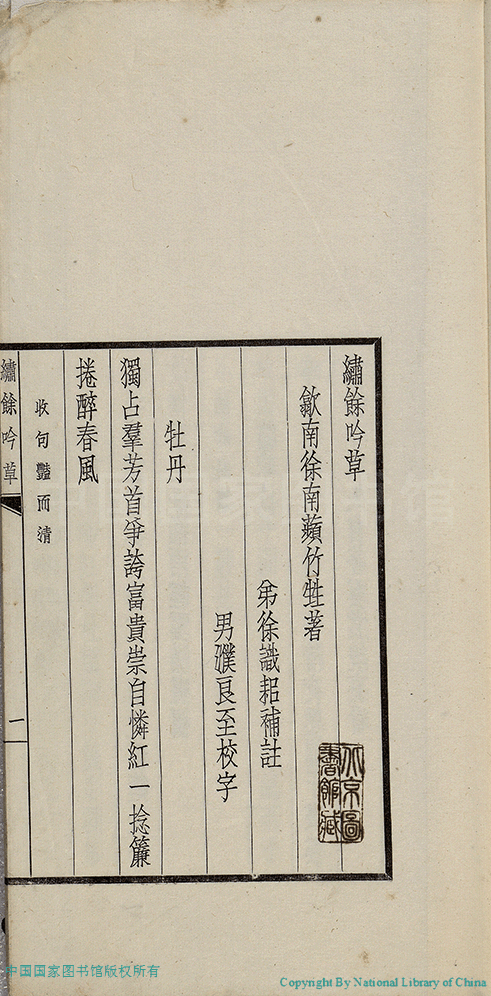 繡餘吟草
歙南徐南蘋竹甡著
弟徐識耜補註
男濮良至校字
牡丹
獨占羣芳首爭誇富貴崇自憐紅一捻簾
捲醉春風
收句豔而清
繡餘吟草
一
北京圖書館藏
中国国家图书馆版权所有
Copyright By National Library of China